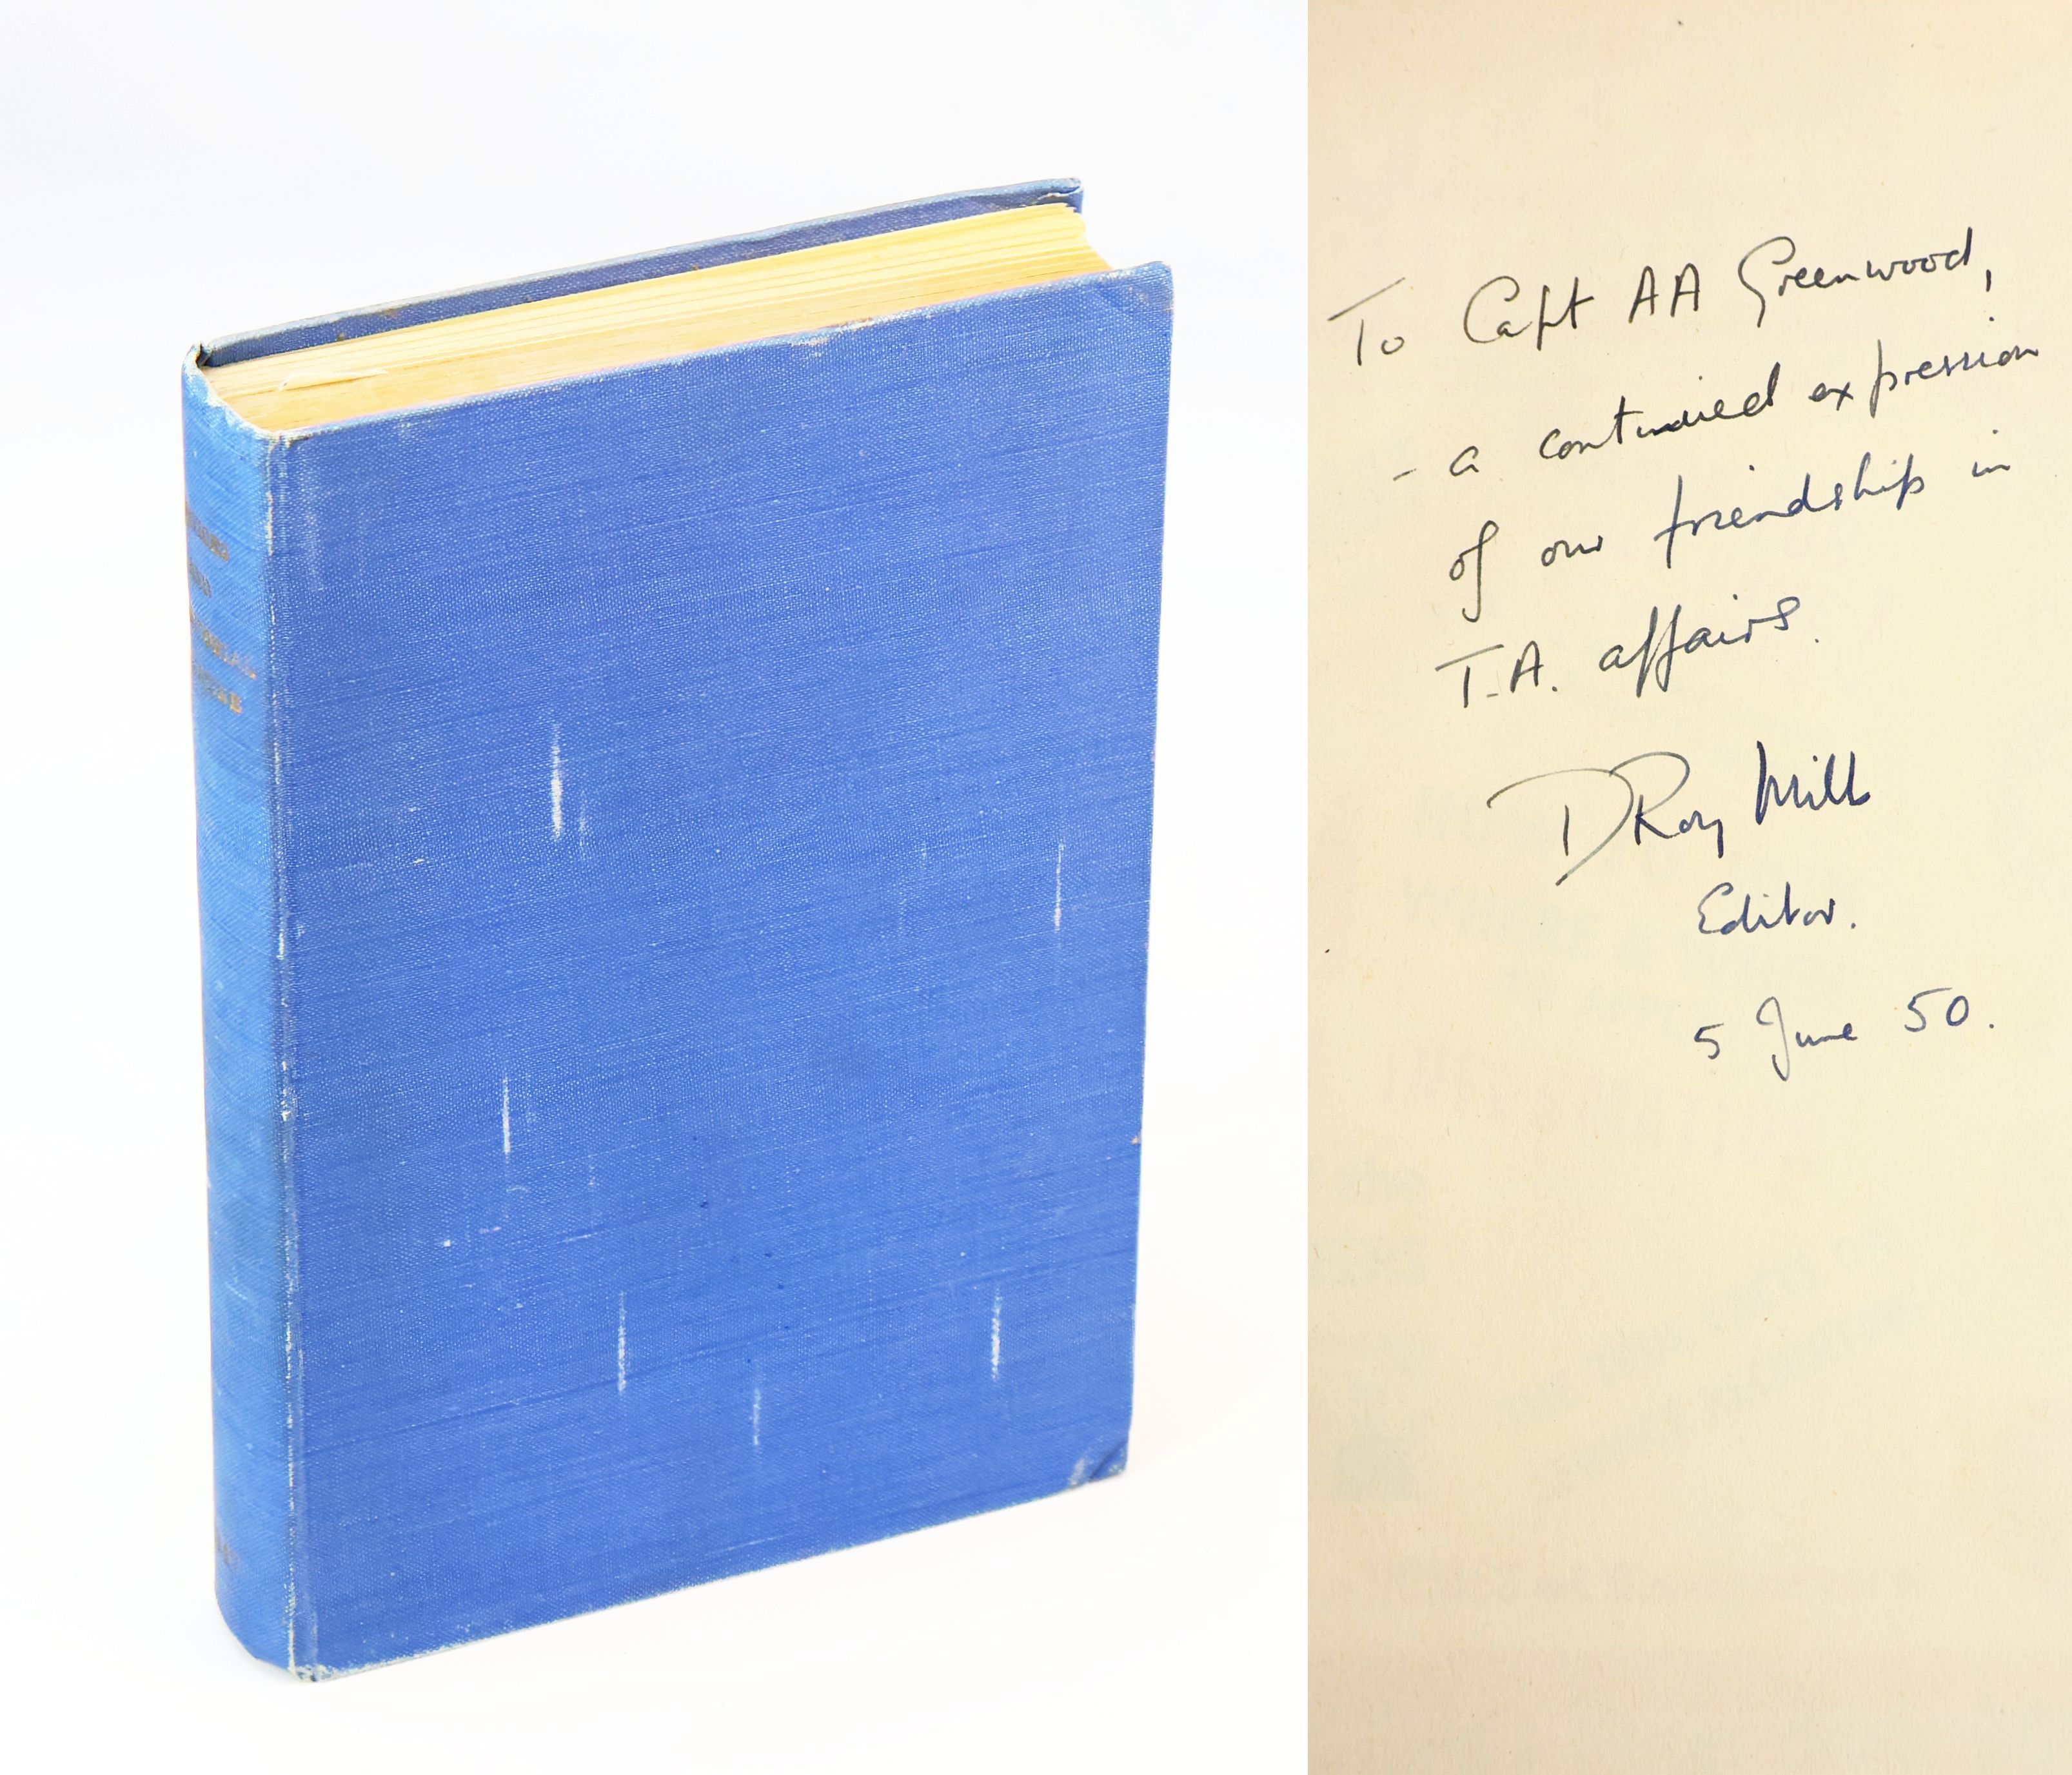 To Capt AA Greenwood,
- a continued expression
of our friendship in
T.A. affairs.
DRoy Mills
Editor.
5 June 50.